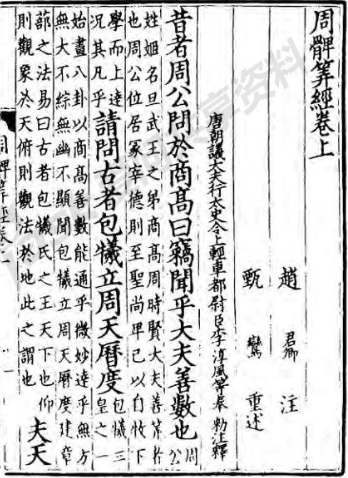 周髀筭經卷上
趙君卿注
甄鸞重述
唐朝議大夫行太史令上輕車都尉臣李淳風等奉勅注釋
昔者周公問於商高曰竊聞乎大夫善數也周公
姓姬名旦武王之弟商高周時賢大夫善筭者
也周公位居冢宰德則至聖尚卑己以自牧下
學而上達
況其凡乎請問古者包犧立周天曆度包犧三
皇之一
始畫八卦以商高善數能通乎微妙達乎無方
無大不綜無幽不顯聞包犧立周天曆度建章
蔀之法易曰古者包犧氏之王天下也仰
則觀象於天俯則觀法於地此之謂也夫天